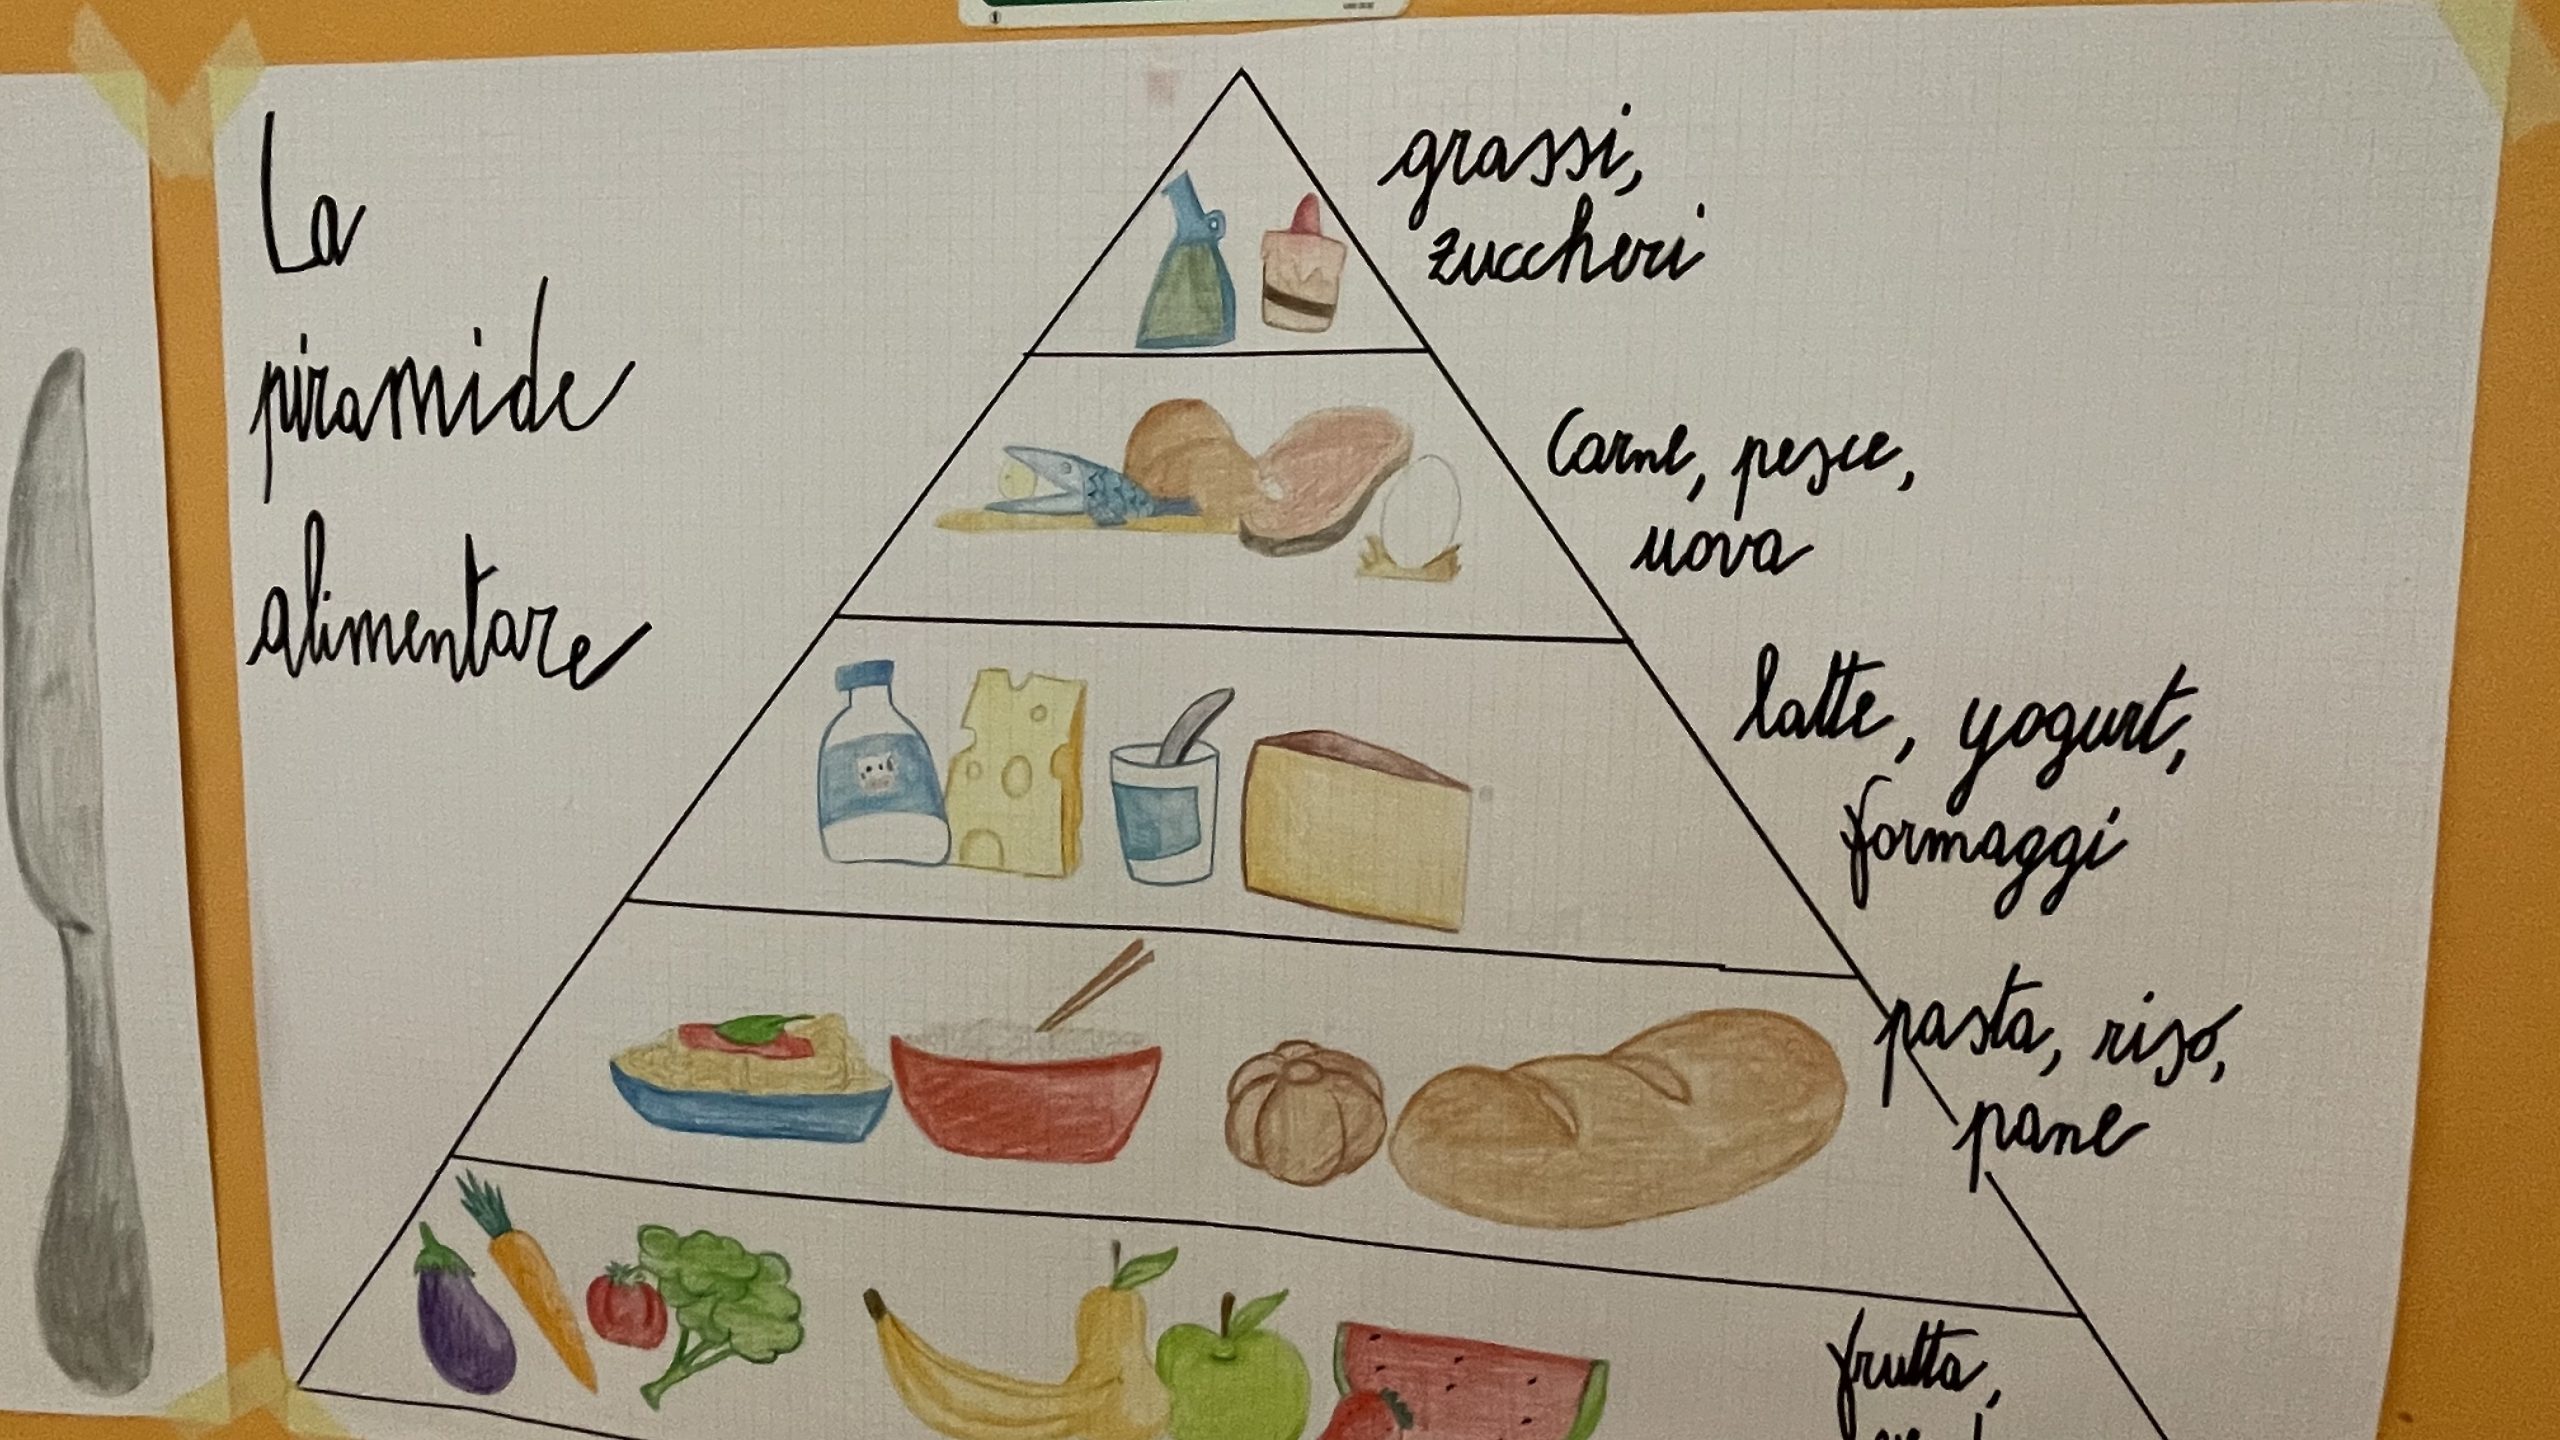 La
piramide
alimentare
grassi,
zuccheri
Carne, pesce,
uova
latte, yogurt,
formaggi
pasta, riso,
pane
frutta,